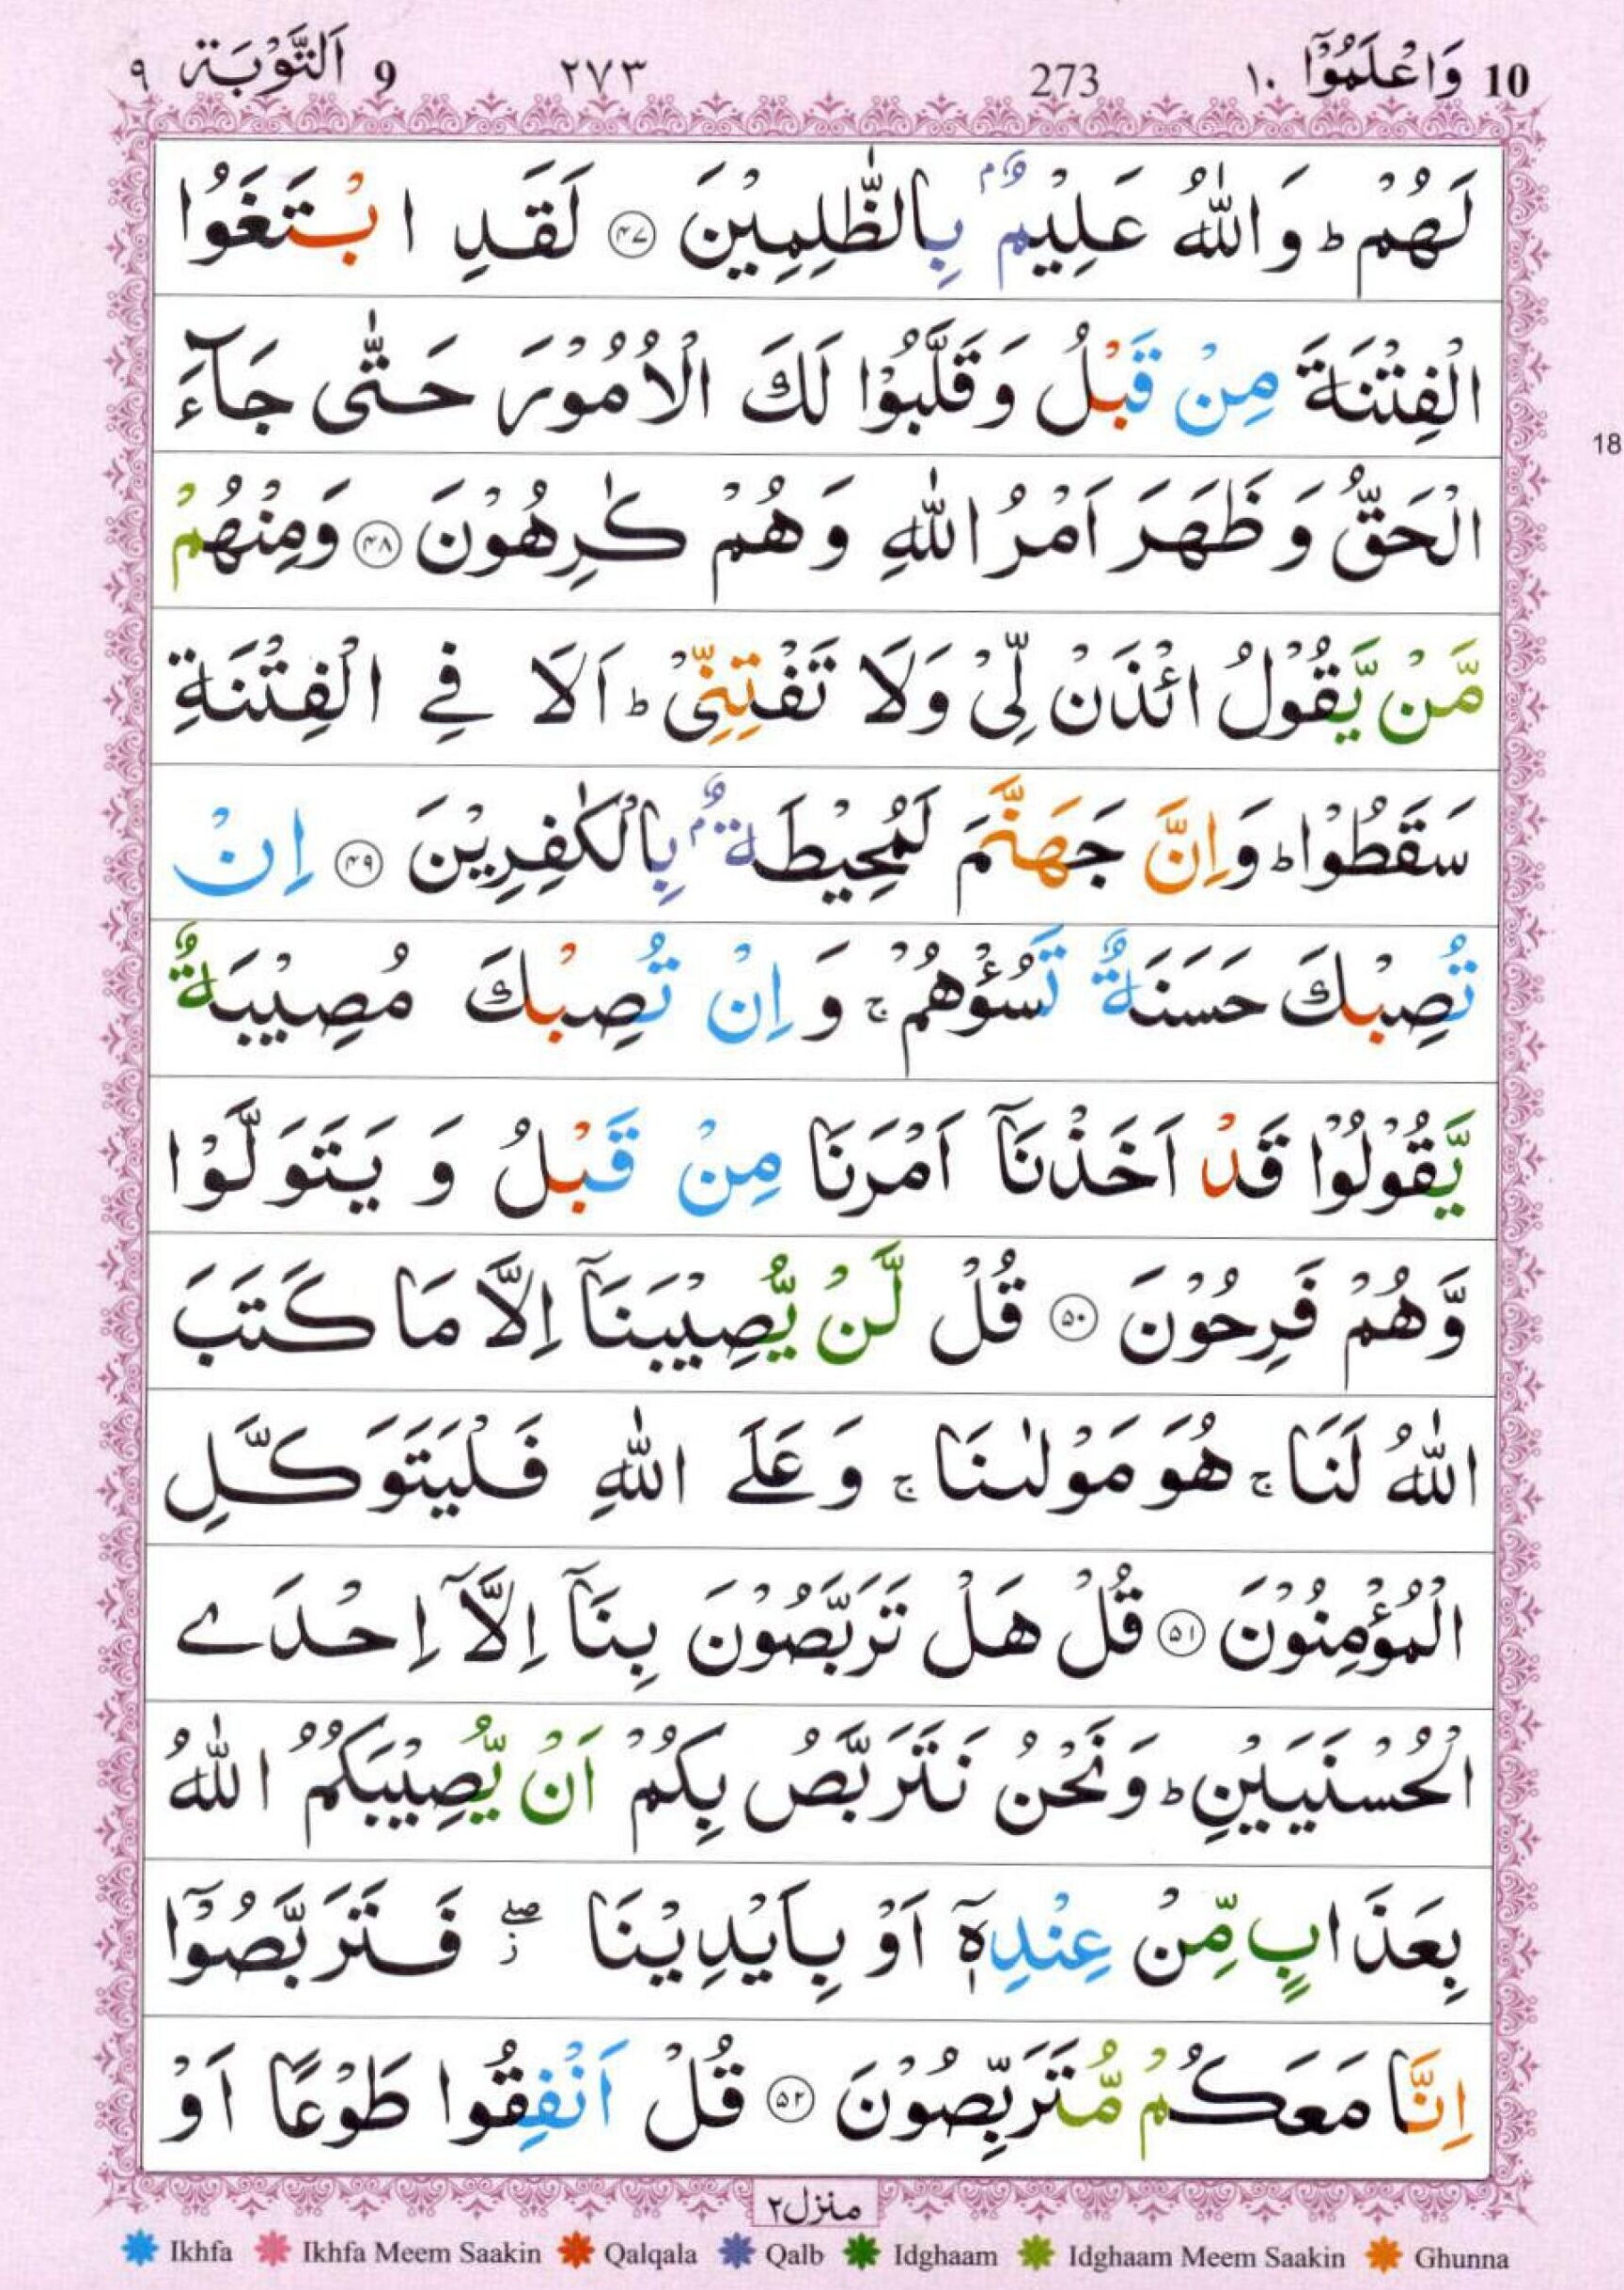 10 وَاعْلَمُوْۤا ١٠ 273 ٢٧٣ 9 اَلتَّوْبَة ٩
لَهُمْ ؕ وَاللّٰهُ عَلِيْمٌۢ بِالظّٰلِمِيْنَ ﴿۴۷﴾ لَقَدِ ابْتَغَوُا
الْفِتْنَةَ مِنْ قَبْلُ وَقَلَّبُوْا لَكَ الْاُمُوْرَ حَتّٰى جَآءَ
الْحَقُّ وَظَهَرَ اَمْرُ اللّٰهِ وَهُمْ كٰرِهُوْنَ ﴿۴۸﴾ وَمِنْهُمْ
مَّنْ يَّقُوْلُ ائْذَنْ لِّىْ وَلَا تَفْتِنِّىْ ؕ اَلَا فِے الْفِتْنَةِ
سَقَطُوْا ؕ وَاِنَّ جَهَنَّمَ لَمُحِيْطَةٌۢ بِالْكٰفِرِيْنَ ﴿۴۹﴾ اِنْ
تُصِبْكَ حَسَنَةٌ تَسُؤْهُمْ ۚ وَاِنْ تُصِبْكَ مُصِيْبَةٌ
يَّقُوْلُوْا قَدْ اَخَذْنَاۤ اَمْرَنَا مِنْ قَبْلُ وَيَتَوَلَّوْا
وَّهُمْ فَرِحُوْنَ ﴿۵۰﴾ قُلْ لَّنْ يُّصِيْبَنَاۤ اِلَّا مَا كَتَبَ
اللّٰهُ لَنَا ۚ هُوَ مَوْلٰىنَا ۚ وَعَلَے اللّٰهِ فَلْيَتَوَكَّلِ
الْمُؤْمِنُوْنَ ﴿۵۱﴾ قُلْ هَلْ تَرَبَّصُوْنَ بِنَاۤ اِلَّاۤ اِحْدَے
الْحُسْنَيَيْنِ ؕ وَنَحْنُ نَتَرَبَّصُ بِكُمْ اَنْ يُّصِيْبَكُمُ اللّٰهُ
بِعَذَابٍ مِّنْ عِنْدِهٖۤ اَوْ بِاَيْدِيْنَا ۖ ز فَتَرَبَّصُوْۤا
اِنَّا مَعَكُمْ مُّتَرَبِّصُوْنَ ﴿۵۲﴾ قُلْ اَنْفِقُوْا طَوْعًا اَوْ
منزل٢
Ikhfa Ikhfa Meem Saakin Qalqala Qalb Idghaam Idghaam Meem Saakin Ghunna
18